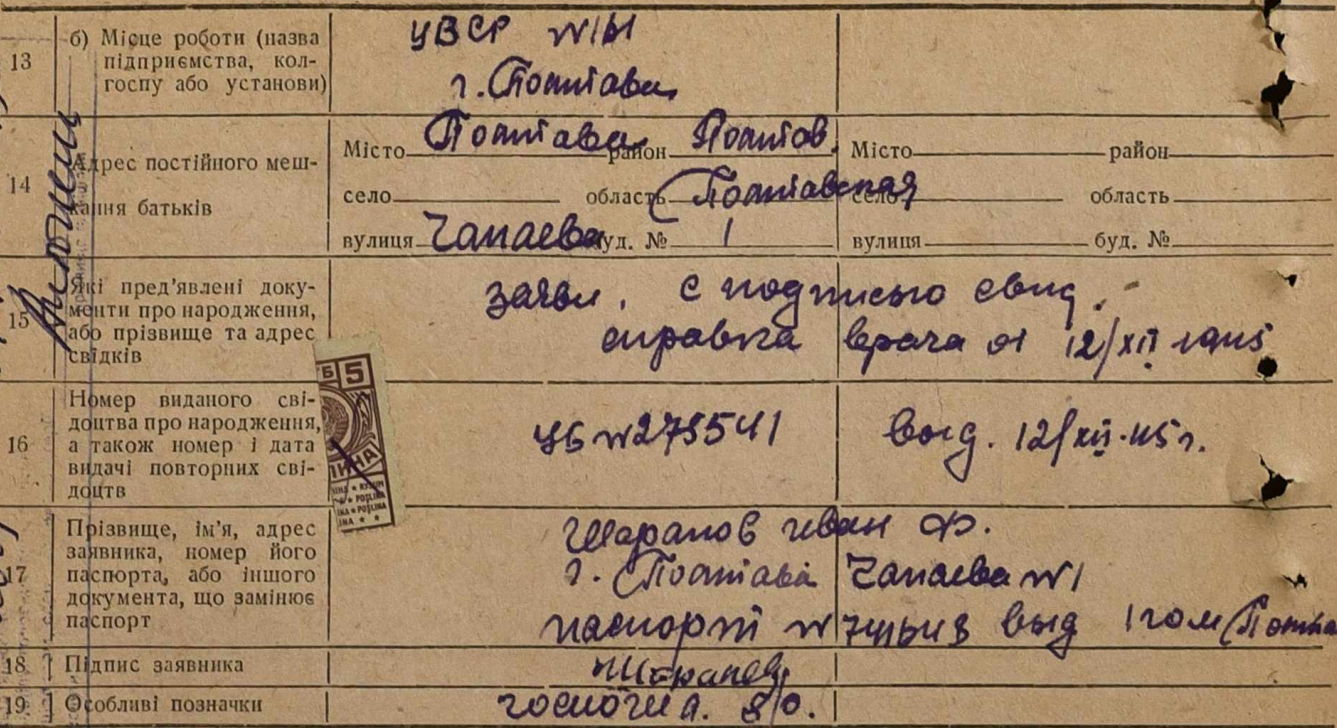 13 б) Місце роботи (назва підприємства, кол-госпу або установи)
УВСР
г. Полтава
14 Адрес постійного меш-кання батьків
Місто Полтава район Полтов. Місто район
село область Полтавская село область
вулиця Чапаева буд. № 1 вулиця буд. №
15 Які пред'явлені доку-менти про народження, або прізвище та адрес свідків
заявл. с подписью свид.
справка врача от 12/XII 1945
16 Номер виданого сві-доцтва про народження, а також номер і дата видачі повторних сві-доцтв
УБ № 273541 выд. 12/XII-45 г.
5
17 Прізвище, ім'я, адрес заявника, номер його паспорта, або іншого документа, що замінює паспорт
Шарапов Иван Ф.
г. Полтава Чапаева № 1
паспорт № выд 1 гом
18 Підпис заявника
Шарапов
19 Особливі позначки